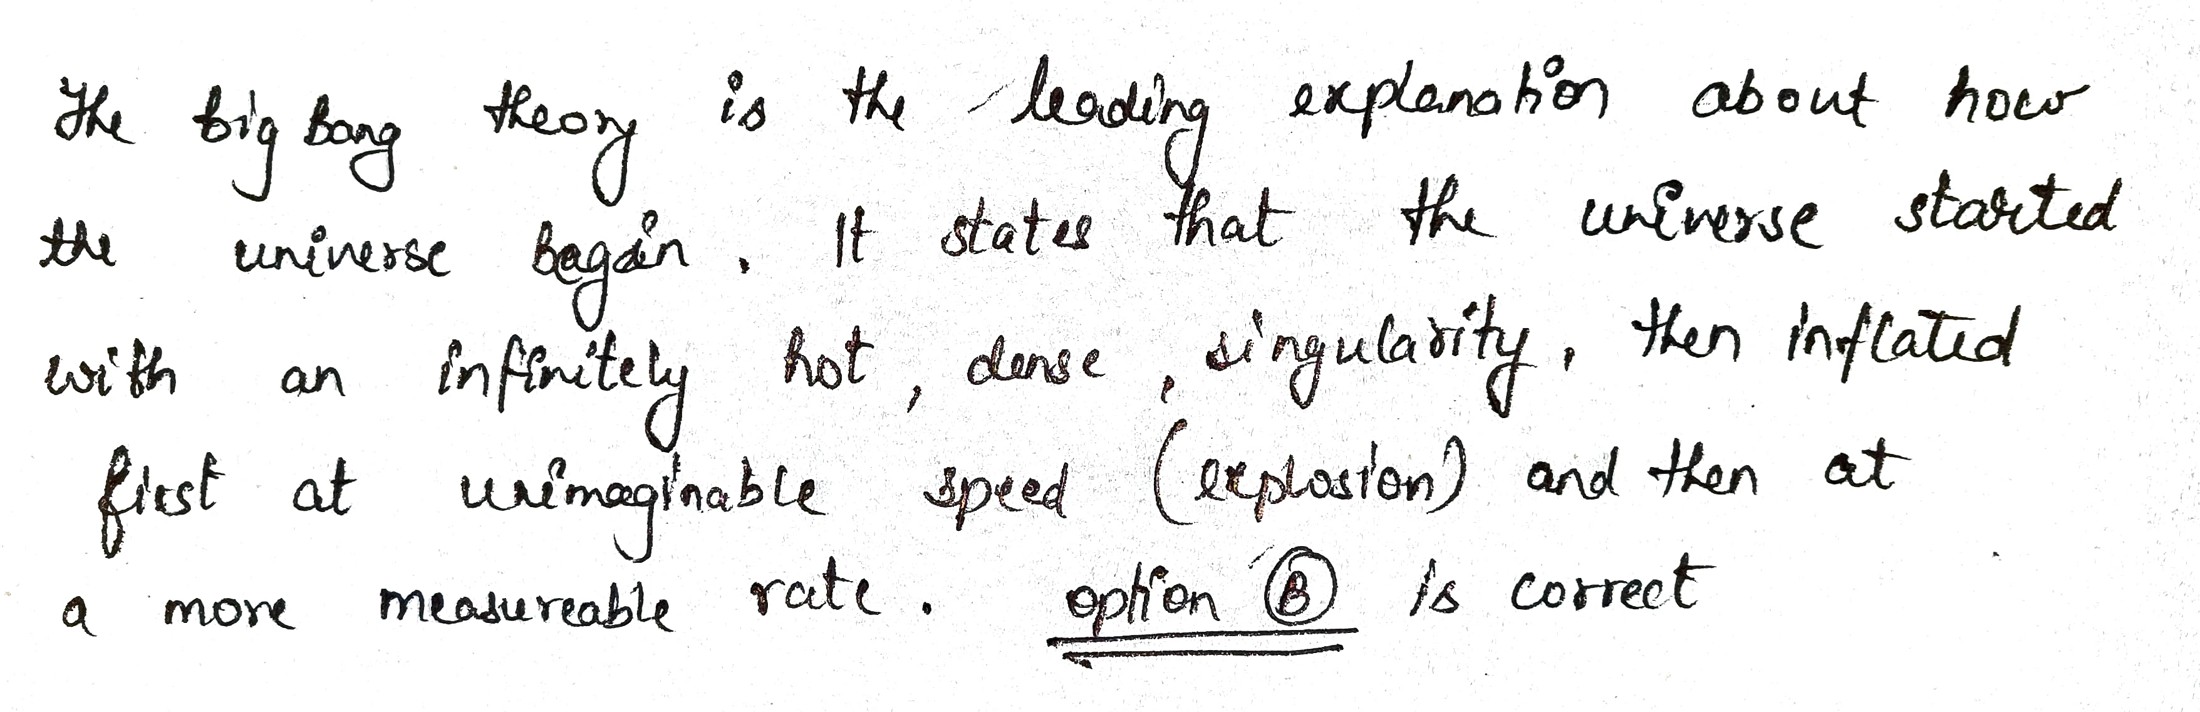 The big bang theory is the leading explanation about how
the universe began. It states that the universe started
with an infinitely hot, dense, singularity, then inflated
first at unimaginable speed (explosion) and then at
a more measureable rate. option B is correct